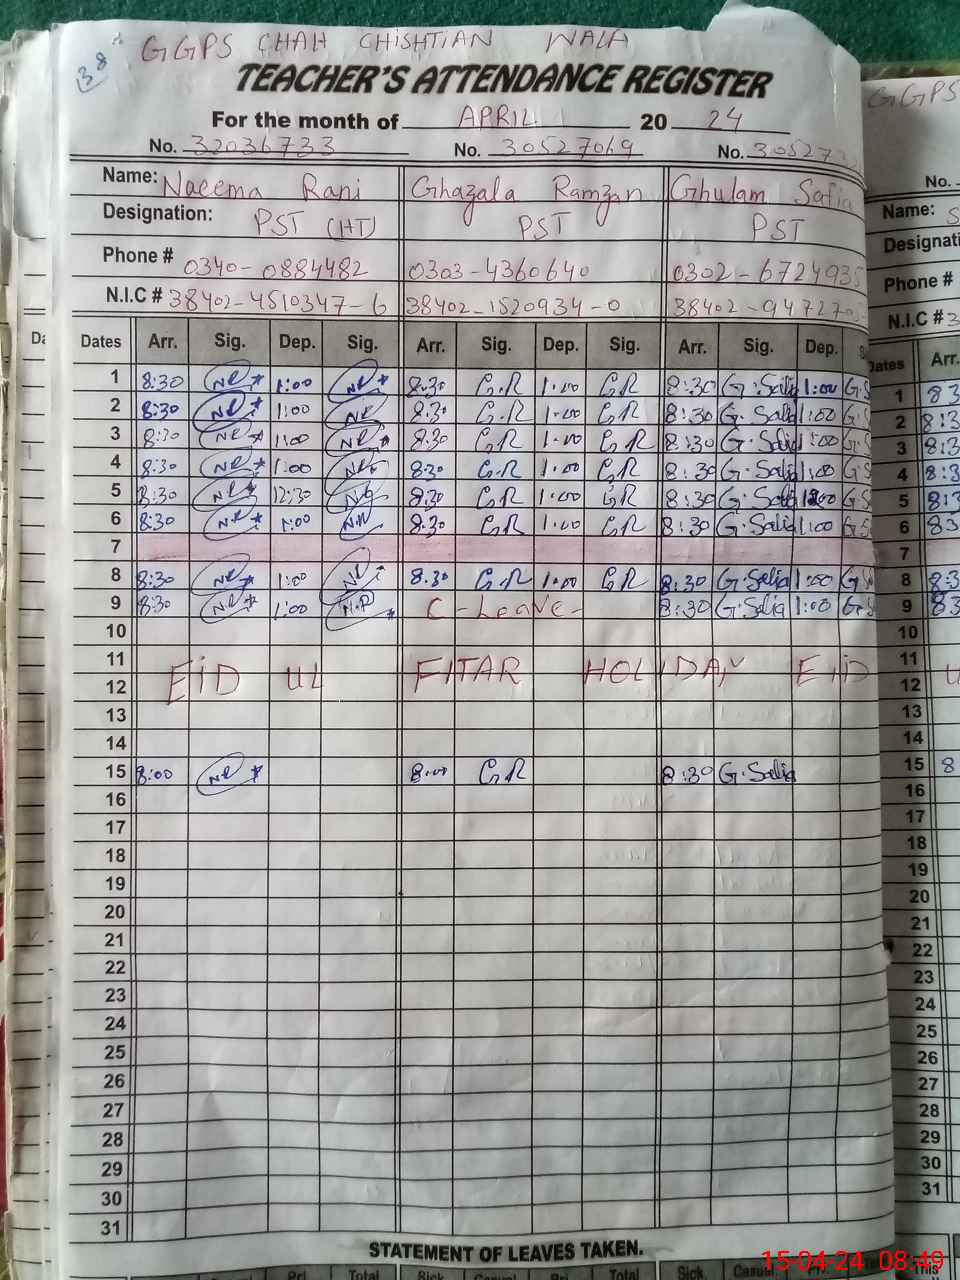 38
GGPS CHAH CHISHTIAN WALA
TEACHER'S ATTENDANCE REGISTER
For the month of APRIL 20 24
No. 32036733 No. 30527069 No. 305273
Name: Naeema Rani Ghazala Ramzan Ghulam Safia
Designation: PST (HT) PST PST
Phone # 0340-0884482 0303-4360640 0302-6724935
N.I.C # 38402-4510347-6 38402-1520934-0 38402-94727
Dates Arr. Sig. Dep. Sig. Arr. Sig. Dep. Sig. Arr. Sig. Dep. S
1 8:30 NR 1:00 NR 8:30 G.R 1:00 GR 8:30 G.Safia 1:00 G.S
2 8:30 NR 1:00 NR 8:30 G.R 1:00 GR 8:30 G.Safia 1:00 G.S
3 8:30 NR 1:00 NR 8:30 G.R 1:00 G.R 8:30 G.Safia 1:00 G.S
4 8:30 NR 1:00 NR 8:30 G.R 1:00 G.R 8:30 G.Safia 1:00 G.S
5 8:30 NR 12:30 NR 8:30 G.R 1:00 G.R 8:30 G.Safia G.S
6 8:30 N.R 1:00 N.R 8:30 G.R 1:00 G.R 8:30 G.Safia 1:00 G.S
7
8 8:30 NR 1:00 NR 8:30 G.R 1:00 G.R 8:30 G.Safia 1:00 G.S
9 8:30 NR 1:00 N.R C-Leave- 8:30 G.Safia 1:00 G.S
10
11
EID UL FITAR HOLIDAY EID
12
13
14
15 8:00 NR 8:00 G.R 8:30 G.Safia
16
17
18
19
20
21
22
23
24
25
26
27
28
29
30
31
STATEMENT OF LEAVES TAKEN.
Pri. Total Sick. Casual Pri. Total Sick. Casual This
GGPS
No.
Name: S
Designati
Phone #
N.I.C # 3
Dates Arr.
1 83
2 8:3
3 8:3
4 8:3
5 8:3
6 83
7
8 8:3
9 83
10
11
12 U
13
14
15 8
16
17
18
19
20
21
22
23
24
25
26
27
28
29
30
31
15-04-24 08:49